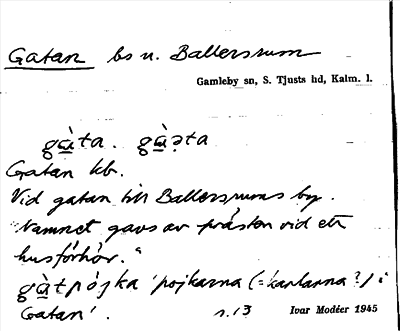 Gatan bs u. Ballersrum
Gamleby sn, S. Tjusts hd, Kalm. l.
gàta. gàəta
Gatan kb.
Vid gatan till Ballersrums by.
"Namnet gavs av prästen vid ett
husförhör."
gàtpójka 'pojkarna (= karlarna?) i
Gatan'. r. 13 Ivar Modéer 1945